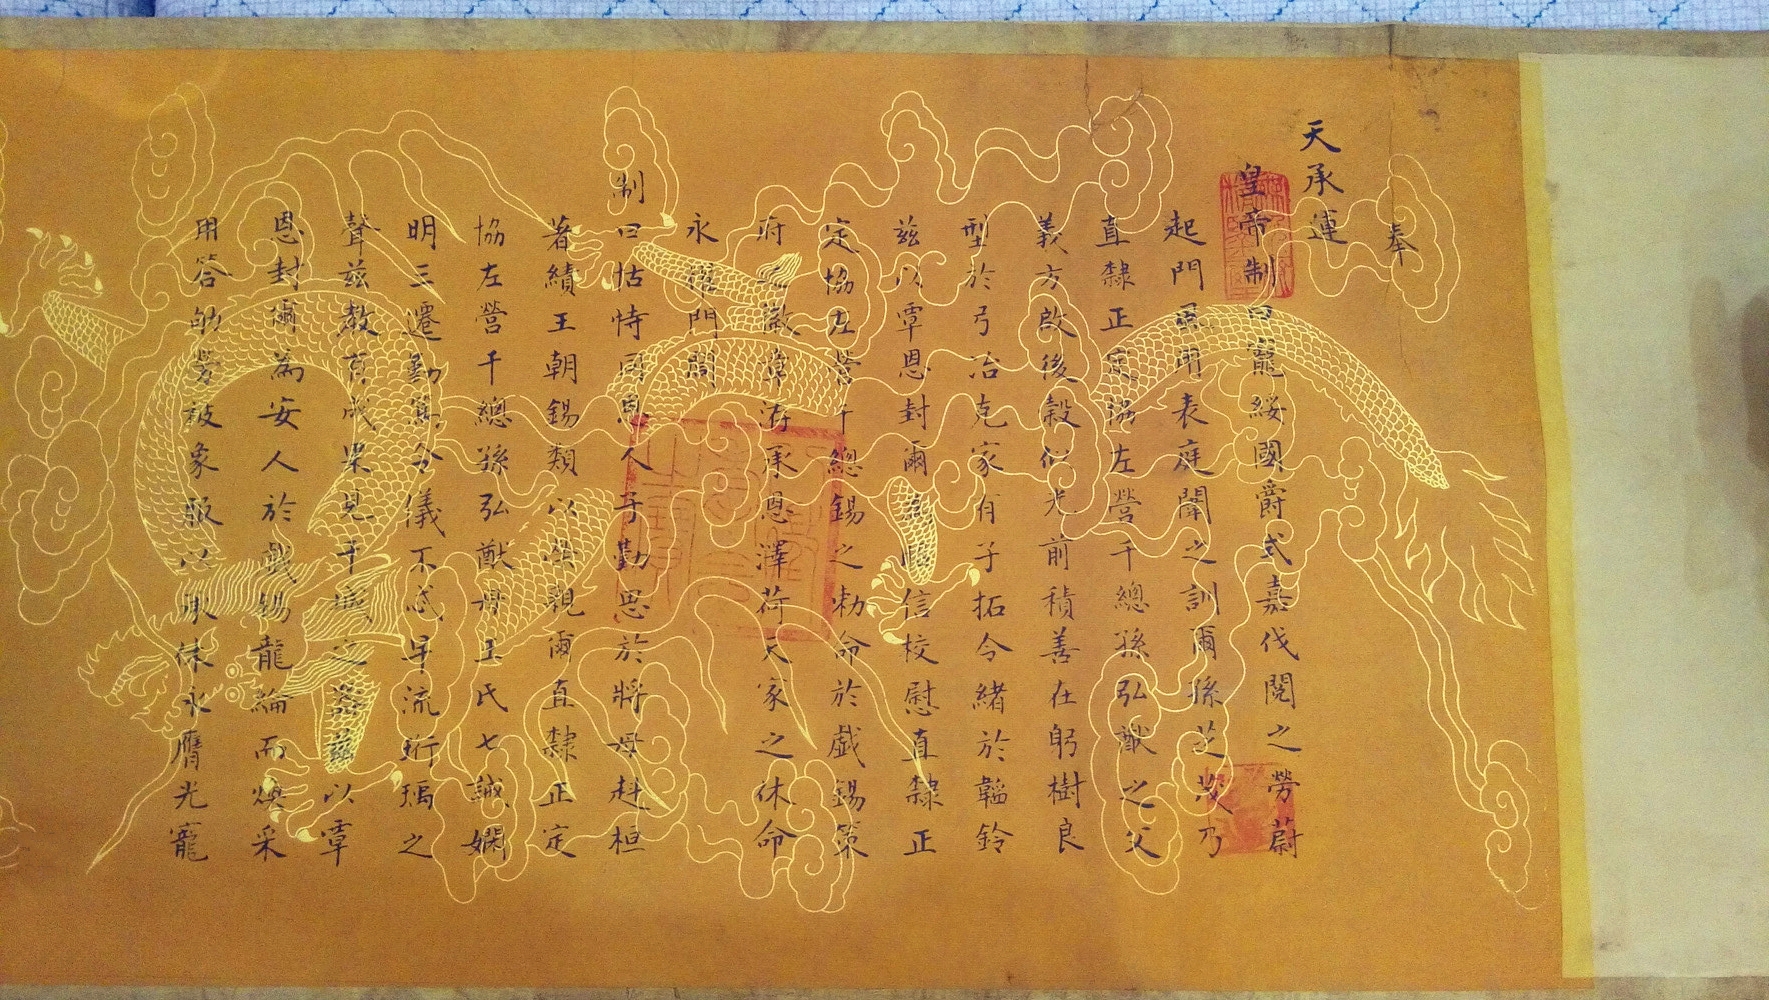 奉
天承運
皇帝制曰寵綏國爵式嘉伐閱之勞蔚
起門風用表庭闈之訓爾孫芝茂乃
直隸正定協左營千總孫弘猷之父
義方啟後穀似光前積善在躬樹良
型於弓冶克家有子拓令緒於韜鈐
茲以覃恩封爾為信校慰直隸正
定協左營千總錫之勅命於戲錫策
府之徽章洊承恩澤荷天家之休命
永 門閭
制曰怙恃同恩人子勤思於將母赳桓
著績王朝錫類以榮親爾直隸正定
協左營千總孫弘猷母王氏七誡嫻
明三遷勤篤令儀不忒早流珩瑀之
聲茲教有成果見干城之器茲以覃
恩封爾為安人於戲錫龍綸而煥采
用答劬勞被象服以承休永膺光寵